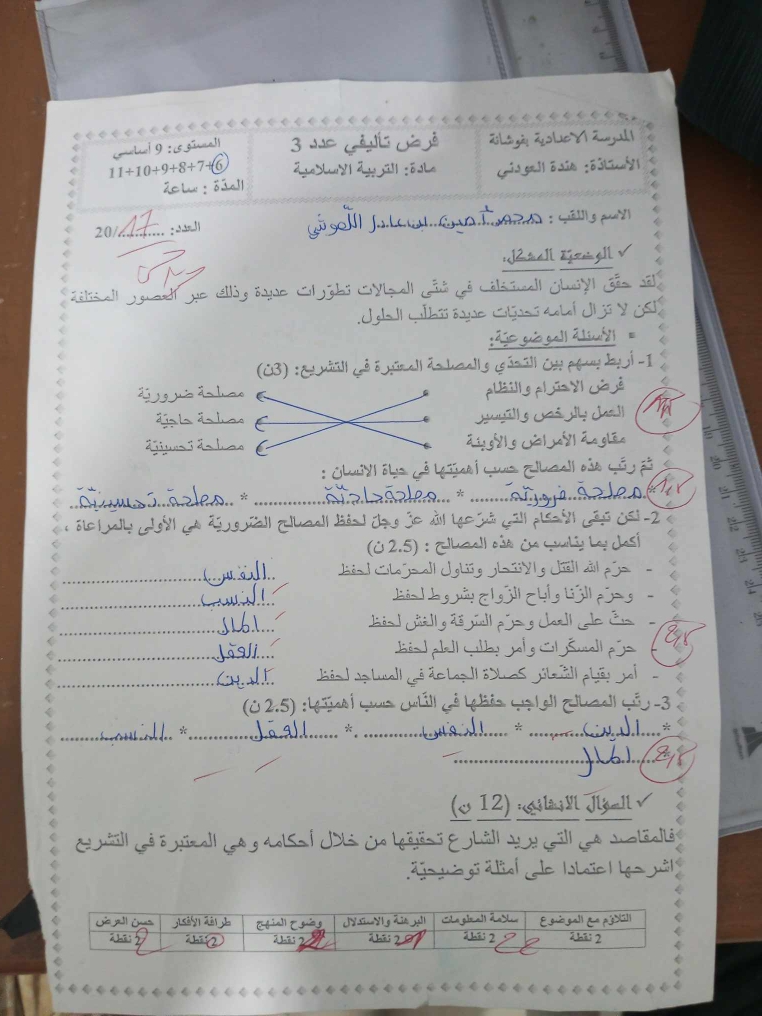 المدرسة الاعدادية بغوشانة
الأستاذة: هندة العودني
فرض تأليفي عدد 3
مادة: التربية الاسلامية
المستوى: 9 أساسي
6+7+8+9+10+11
المدّة : ساعة
الاسم واللقب : محمد أمين بن عادل اللموشي
العدد: 17/20
✓ الوضعيّة المشكل:
لقد حقّق الإنسان المستخلف في شتّى المجالات تطوّرات عديدة وذلك عبر العصور المختلفة
لكن لا تزال أمامه تحديّات عديدة تتطلّب الحلول.
▪ الأسئلة الموضوعيّة:
1- أربط بسهم بين التحدّي والمصلحة المعتبرة في التشريع: (3ن)
فرض الاحترام والنظام مصلحة ضروريّة
العمل بالرخص والتيسير مصلحة حاجيّة
مقاومة الأمراض والأوبئة مصلحة تحسينيّة
ثمّ رتّب هذه المصالح حسب أهميّتها في حياة الانسان :
* مصلحة ضروريّة * مصلحة حاجيّة * مصلحة تحسينيّة
2- لكن تبقى الأحكام التي شرّعها الله عزّ وجلّ لحفظ المصالح الضّروريّة هي الأولى بالمراعاة ،
أكمل بما يناسب من هذه المصالح : (2.5 ن)
- حرّم الله القتل والانتحار وتناول المحرّمات لحفظ النفس
- وحرّم الزّنا وأباح الزّواج بشروط لحفظ النسب
- حثّ على العمل وحرّم السّرقة والغش لحفظ المال
- حرّم المسكّرات وأمر بطلب العلم لحفظ العقل
- أمر بقيام الشّعائر كصلاة الجماعة في المساجد لحفظ الدين
3- رتّب المصالح الواجب حفظها في النّاس حسب أهميّتها: (2.5 ن)
* الدين * النفس * العقل * النسب
المال
✓ السؤال الانشائي: (12 ن)
فالمقاصد هي التي يريد الشارع تحقيقها من خلال أحكامه وهي المعتبرة في التشريع
اشرحها اعتمادا على أمثلة توضيحيّة.
التلاؤم مع الموضوع سلامة المعلومات البرهنة والاستدلال وضوح المنهج طرافة الأفكار حسن العرض
2 نقطة 2 نقطة 2 نقطة 2 نقطة 2 نقطة 2 نقطة